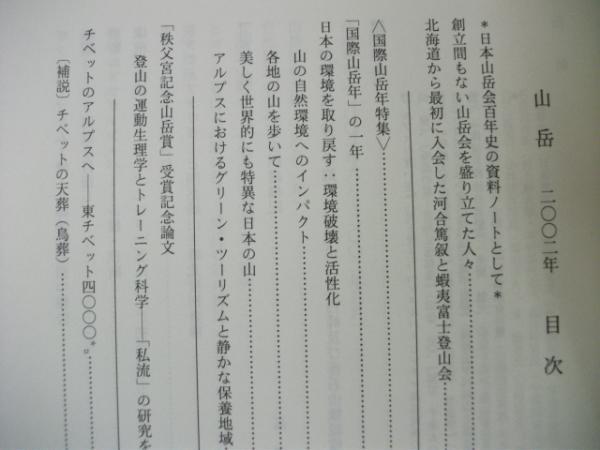 山岳　二〇〇二年　目次
＊日本山岳会百年史の資料ノートとして＊
創立間もない山岳会を盛り立てた人々…………
北海道から最初に入会した河合篤叙と蝦夷富士登山会…………
〈国際山岳年特集〉
「国際山岳年」の一年…………
日本の環境を取り戻す：環境破壊と活性化
山の自然環境へのインパクト…………
各地の山を歩いて…………
美しく世界的にも特異な日本の山…………
アルプスにおけるグリーン・ツーリズムと静かな保養地域…………
「秩父宮記念山岳賞」受賞記念論文
登山の運動生理学とトレーニング科学――「私流」の研究を
チベットのアルプスへ――東チベット四〇〇〇キロ…………
〔補説〕チベットの天葬（鳥葬）…………